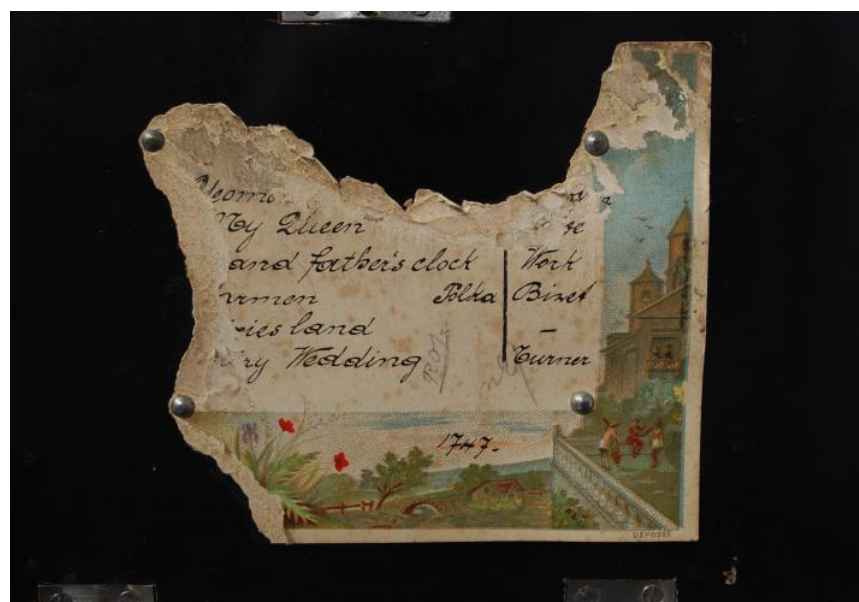 My Queen
and father's clock Work
rmen Polka Bizet
ies land –
ry Wedding Turner
1747.
DEPOSÉ